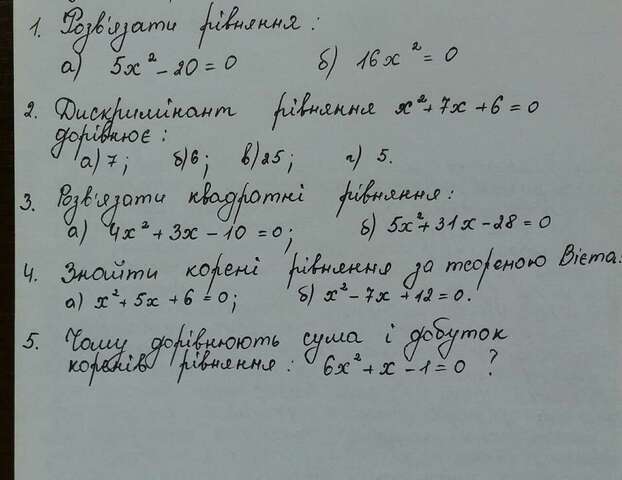 1. Розв'язати рівняння :
а) 5x² - 20 = 0 б) 16x² = 0
2. Дискримінант рівняння x² + 7x + 6 = 0
дорівнює :
а) 7 ; б) 6 ; в) 25 ; г) 5.
3. Розв'язати квадратні рівняння :
а) 4x² + 3x - 10 = 0 ; б) 5x² + 31x - 28 = 0
4. Знайти корені рівняння за теореною Вієта:
а) x² + 5x + 6 = 0 ; б) x² - 7x + 12 = 0.
5. Чому дорівнюють сума і добуток
коренів рівняння : 6x² + x - 1 = 0 ?